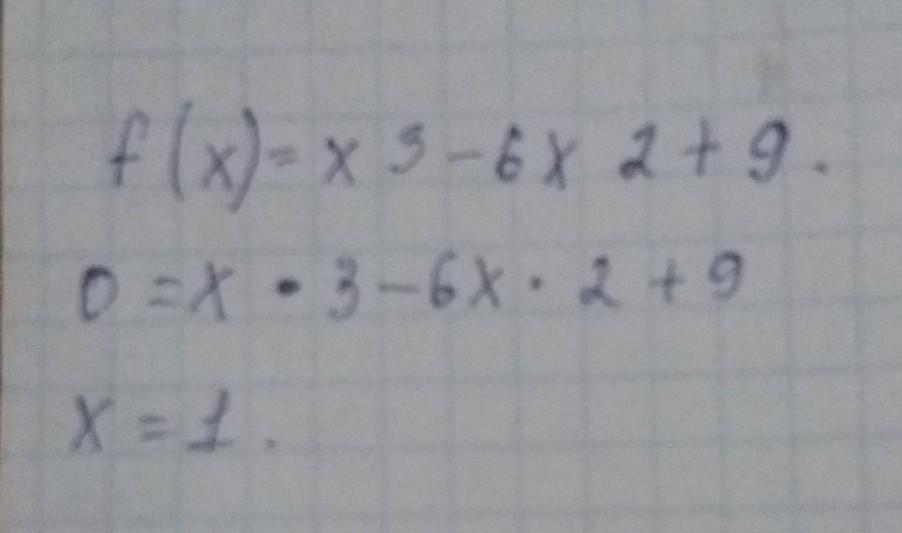 f(x)=x 3-6x 2+9.
0=x•3-6x·2+9
x=1.